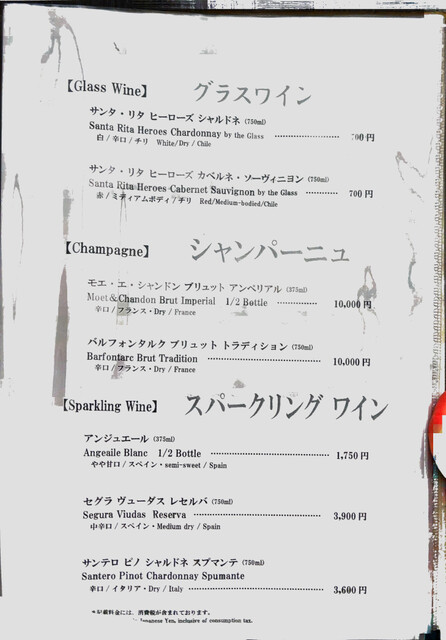 【Glass Wine】 グラスワイン
サンタ・リタ ヒーローズ シャルドネ (750ml)
Santa Rita Heroes Chardonnay by the Glass 700円
白 / 辛口 / チリ White/Dry / Chile
サンタ・リタ ヒーローズ カベルネ・ソーヴィニヨン (750ml)
Santa Rita Heroes Cabernet Sauvignon by the Glass 700円
赤 / ミディアムボディ / チリ Red/Medium-bodied/Chile
【Champagne】 シャンパーニュ
モエ・エ・シャンドン ブリュット アンペリアル (375ml)
Moet&Chandon Brut Imperial 1/2 Bottle 10,000円
辛口 / フランス・Dry / France
バルフォンタルク ブリュット トラディション (750ml)
Barfontarc Brut Tradition 10,000円
辛口 / フランス・Dry / France
【Sparkling Wine】 スパークリング ワイン
アンジュエール (375ml)
Angeaile Blanc 1/2 Bottle 1,750円
やや甘口 / スペイン・semi-sweet / Spain
セグラ ヴューダス レセルバ (750ml)
Segura Viudas Reserva 3,900円
中辛口 / スペイン・Medium dry / Spain
サンテロ ピノ シャルドネ スプマンテ (750ml)
Santero Pinot Chardonnay Spumante
辛口 / イタリア・Dry / Italy 3,600円
*記載料金には、消費税が含まれております。
Japanese Yen, inclusive of consumption tax.